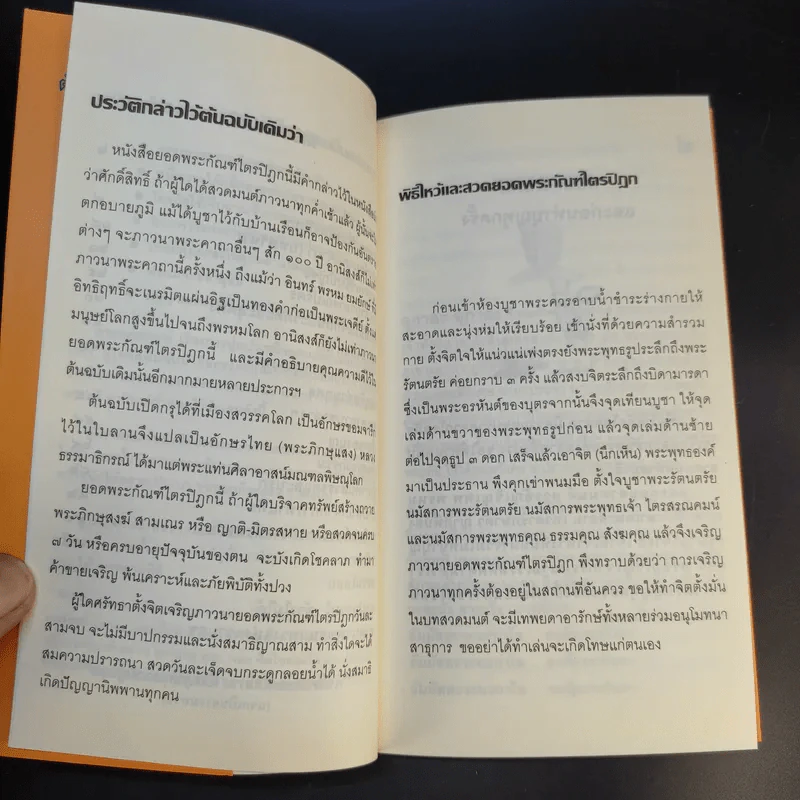 ประวัติกล่าวไว้ต้นฉบับเดิมว่า
หนังสือยอดพระกัณฑ์ไตรปิฎกนี้มีคำกล่าวไว้ในหนังสือ
ว่าศักดิ์สิทธิ์ ถ้าผู้ใดได้สวดมนต์ภาวนาทุกค่ำเช้าแล้ว ผู้นั้นจะ
ตกอบายภูมิ แม้ได้บูชาไว้กับบ้านเรือนก็อาจป้องกันอันตราย
ต่างๆ จะภาวนาพระคาถาอื่นๆ สัก ๑๐๐ ปี อานิสงส์ก็ไม่
ภาวนาพระคาถานี้ครั้งหนึ่ง ถึงแม้ว่า อินทร์ พรหม ยมยักษ์
อิทธิฤทธิ์จะเนรมิตแผ่นอิฐเป็นทองคำก่อเป็นพระเจดีย์ ตั้งแต่
มนุษย์โลกสูงขึ้นไปจนถึงพรหมโลก อานิสงส์ก็ยังไม่เท่าภาวนา
ยอดพระกัณฑ์ไตรปิฎกนี้ และมีคำอธิบายคุณความดีไว้ใน
ต้นฉบับเดิมนั้นอีกมากมายหลายประการฯ
ต้นฉบับเปิดกรุได้ที่เมืองสวรรคโลก เป็นอักษรขอมจารึก
ไว้ในใบลานจึงแปลเป็นอักษรไทย (พระภิกษุแสง) หลวง
ธรรมาธิกรณ์ ได้มาแต่พระแท่นศิลาอาสน์มณฑลพิษณุโลก
ยอดพระกัณฑ์ไตรปิฎกนี้ ถ้าผู้ใดบริจาคทรัพย์สร้างถวาย
พระภิกษุสงฆ์ สามเณร หรือ ญาติ-มิตรสหาย หรือสวดจนครบ
๗ วัน หรือครบอายุปัจจุบันของตน จะบังเกิดโชคลาภ ทำมา
ค้าขายเจริญ พ้นเคราะห์และภัยพิบัติทั้งปวง
ผู้ใดศรัทธาตั้งจิตเจริญภาวนายอดพระกัณฑ์ไตรปิฎกวันละ
สามจบ จะไม่มีบาปกรรมและนั่งสมาธิญาณสาม ทำสิ่งใดจะได้
สมความปรารถนา สวดวันละเจ็ดจบกระดูกลอยน้ำได้ นั่งสมาธิ
เกิดปัญญานิพพานทุกคน
พิธีไหว้และสวดยอดพระกัณฑ์ไตรปิฎก
ก่อนเข้าห้องบูชาพระควรอาบน้ำชำระร่างกายให้
สะอาดและนุ่งห่มให้เรียบร้อย เข้านั่งที่ด้วยความสำรวม
กาย ตั้งจิตใจให้แน่วแน่เพ่งตรงยังพระพุทธรูประลึกถึงพระ
รัตนตรัย ค่อยกราบ ๓ ครั้ง แล้วสงบจิตระลึกถึงบิดามารดา
ซึ่งเป็นพระอรหันต์ของบุตรจากนั้นจึงจุดเทียนบูชา ให้จุด
เล่มด้านขวาของพระพุทธรูปก่อน แล้วจุดเล่มด้านซ้าย
ต่อไปจุดธูป ๓ ดอก เสร็จแล้วเอาจิต (นึกเห็น) พระพุทธองค์
มาเป็นประธาน พึงคุกเข่าพนมมือ ตั้งใจบูชาพระรัตนตรัย
นมัสการพระรัตนตรัย นมัสการพระพุทธเจ้า ไตรสรณคมน์
และนมัสการพระพุทธคุณ ธรรมคุณ สังฆคุณ แล้วจึงเจริญ
ภาวนายอดพระกัณฑ์ไตรปิฎก พึงทราบด้วยว่า การเจริญ
ภาวนาทุกครั้งต้องอยู่ในสถานที่อันควร ขอให้ทำจิตตั้งมั่น
ในบทสวดมนต์ จะมีเทพยดาอารักษ์ทั้งหลายร่วมอนุโมทนา
สาธุการ ขออย่าได้ทำเล่นจะเกิดโทษแก่ตนเอง